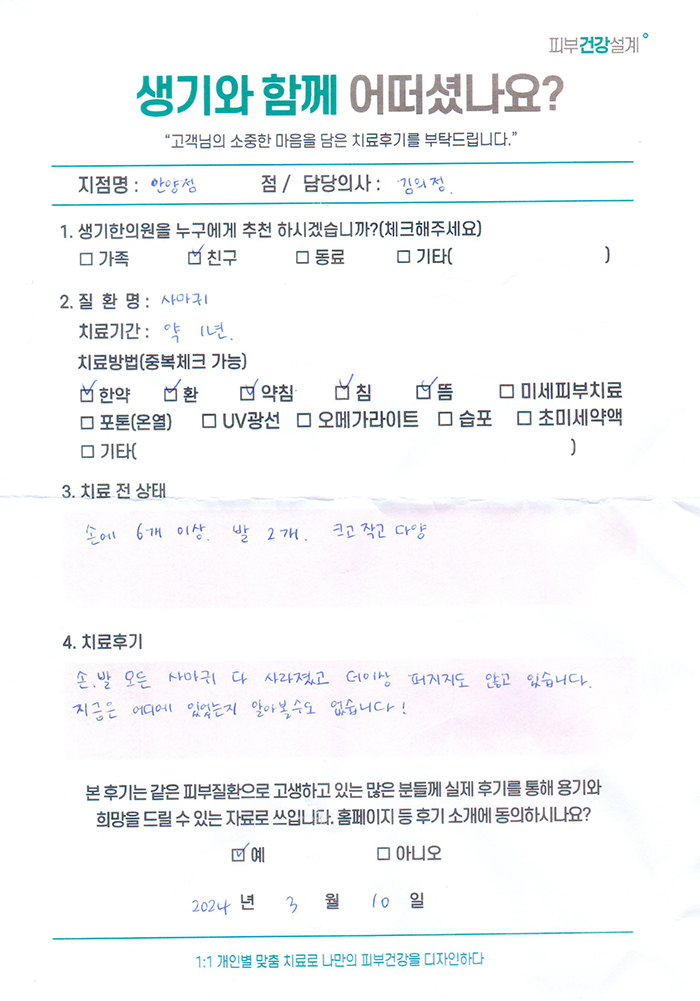 피부건강설계
생기와 함께 어떠셨나요?
“고객님의 소중한 마음을 담은 치료후기를 부탁드립니다.”
지점명 : 안양점 점 / 담당의사 : 김의정.
1. 생기한의원을 누구에게 추천 하시겠습니까?(체크해주세요)
☐ 가족 ☑ 친구 ☐ 동료 ☐ 기타( )
2. 질 환 명 : 사마귀
치료기간 : 약 1년.
치료방법(중복체크 가능)
☑ 한약 ☑ 환 ☑ 약침 ☑ 침 ☑ 뜸 ☐ 미세피부치료
☐ 포톤(온열) ☐ UV광선 ☐ 오메가라이트 ☐ 습포 ☐ 초미세약액
☐ 기타( )
3. 치료 전 상태
손에 6개 이상. 발 2개. 크고 작고 다양
4. 치료후기
손, 발 모든 사마귀 다 사라졌고 더이상 퍼지지도 않고 있습니다.
지금은 어디에 있었는지 알아볼수도 없습니다!
본 후기는 같은 피부질환으로 고생하고 있는 많은 분들께 실제 후기를 통해 용기와
희망을 드릴 수 있는 자료로 쓰입니다. 홈페이지 등 후기 소개에 동의하시나요?
☑ 예 ☐ 아니오
2024 년 3 월 10 일
1:1 개인별 맞춤 치료로 나만의 피부건강을 디자인하다